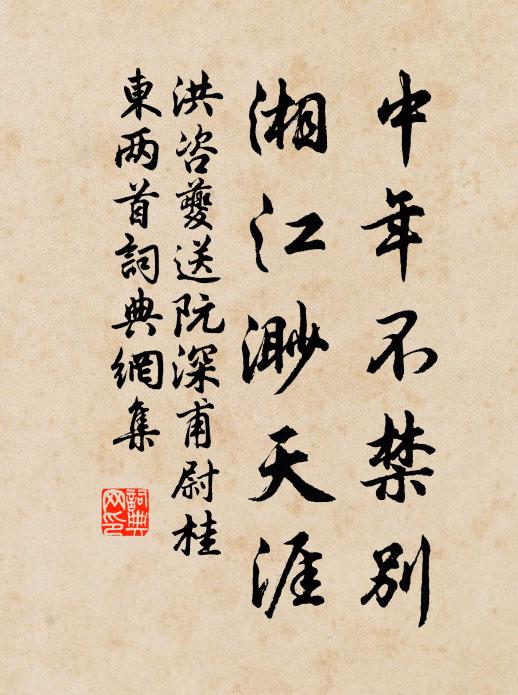 中年不禁别
湘江渺天涯
洪咨夔送阮深甫尉桂
東两首詞典網集
詞典网印